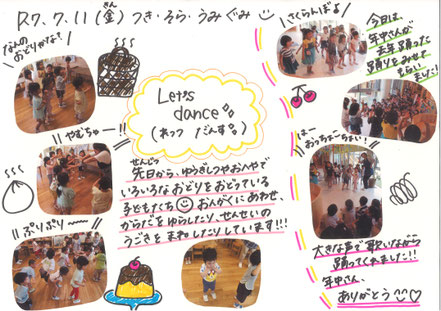 R7.7.11(金)つき・そら・うみぐみ
きん
なんの
おどりかな?
Let's
dance
(れっつ だんす)
やむちゃー!!
ぷりぷり〜
せんじつ
先日から、ゆうぎしつやおへやで
いろいろなおどりをおどっている
子どもたち おんがくにあわせ、
からだをゆらしたり、せんせいの
うごきをまねしたりしています!!!
さくらんぼよ
今日は、
年中さんが
去年踊った
踊りをみせて
もらいました!
はー
おっちょーちょい!
大きな声で歌いながら
踊ってくれました!!
年中さん、
ありがとう